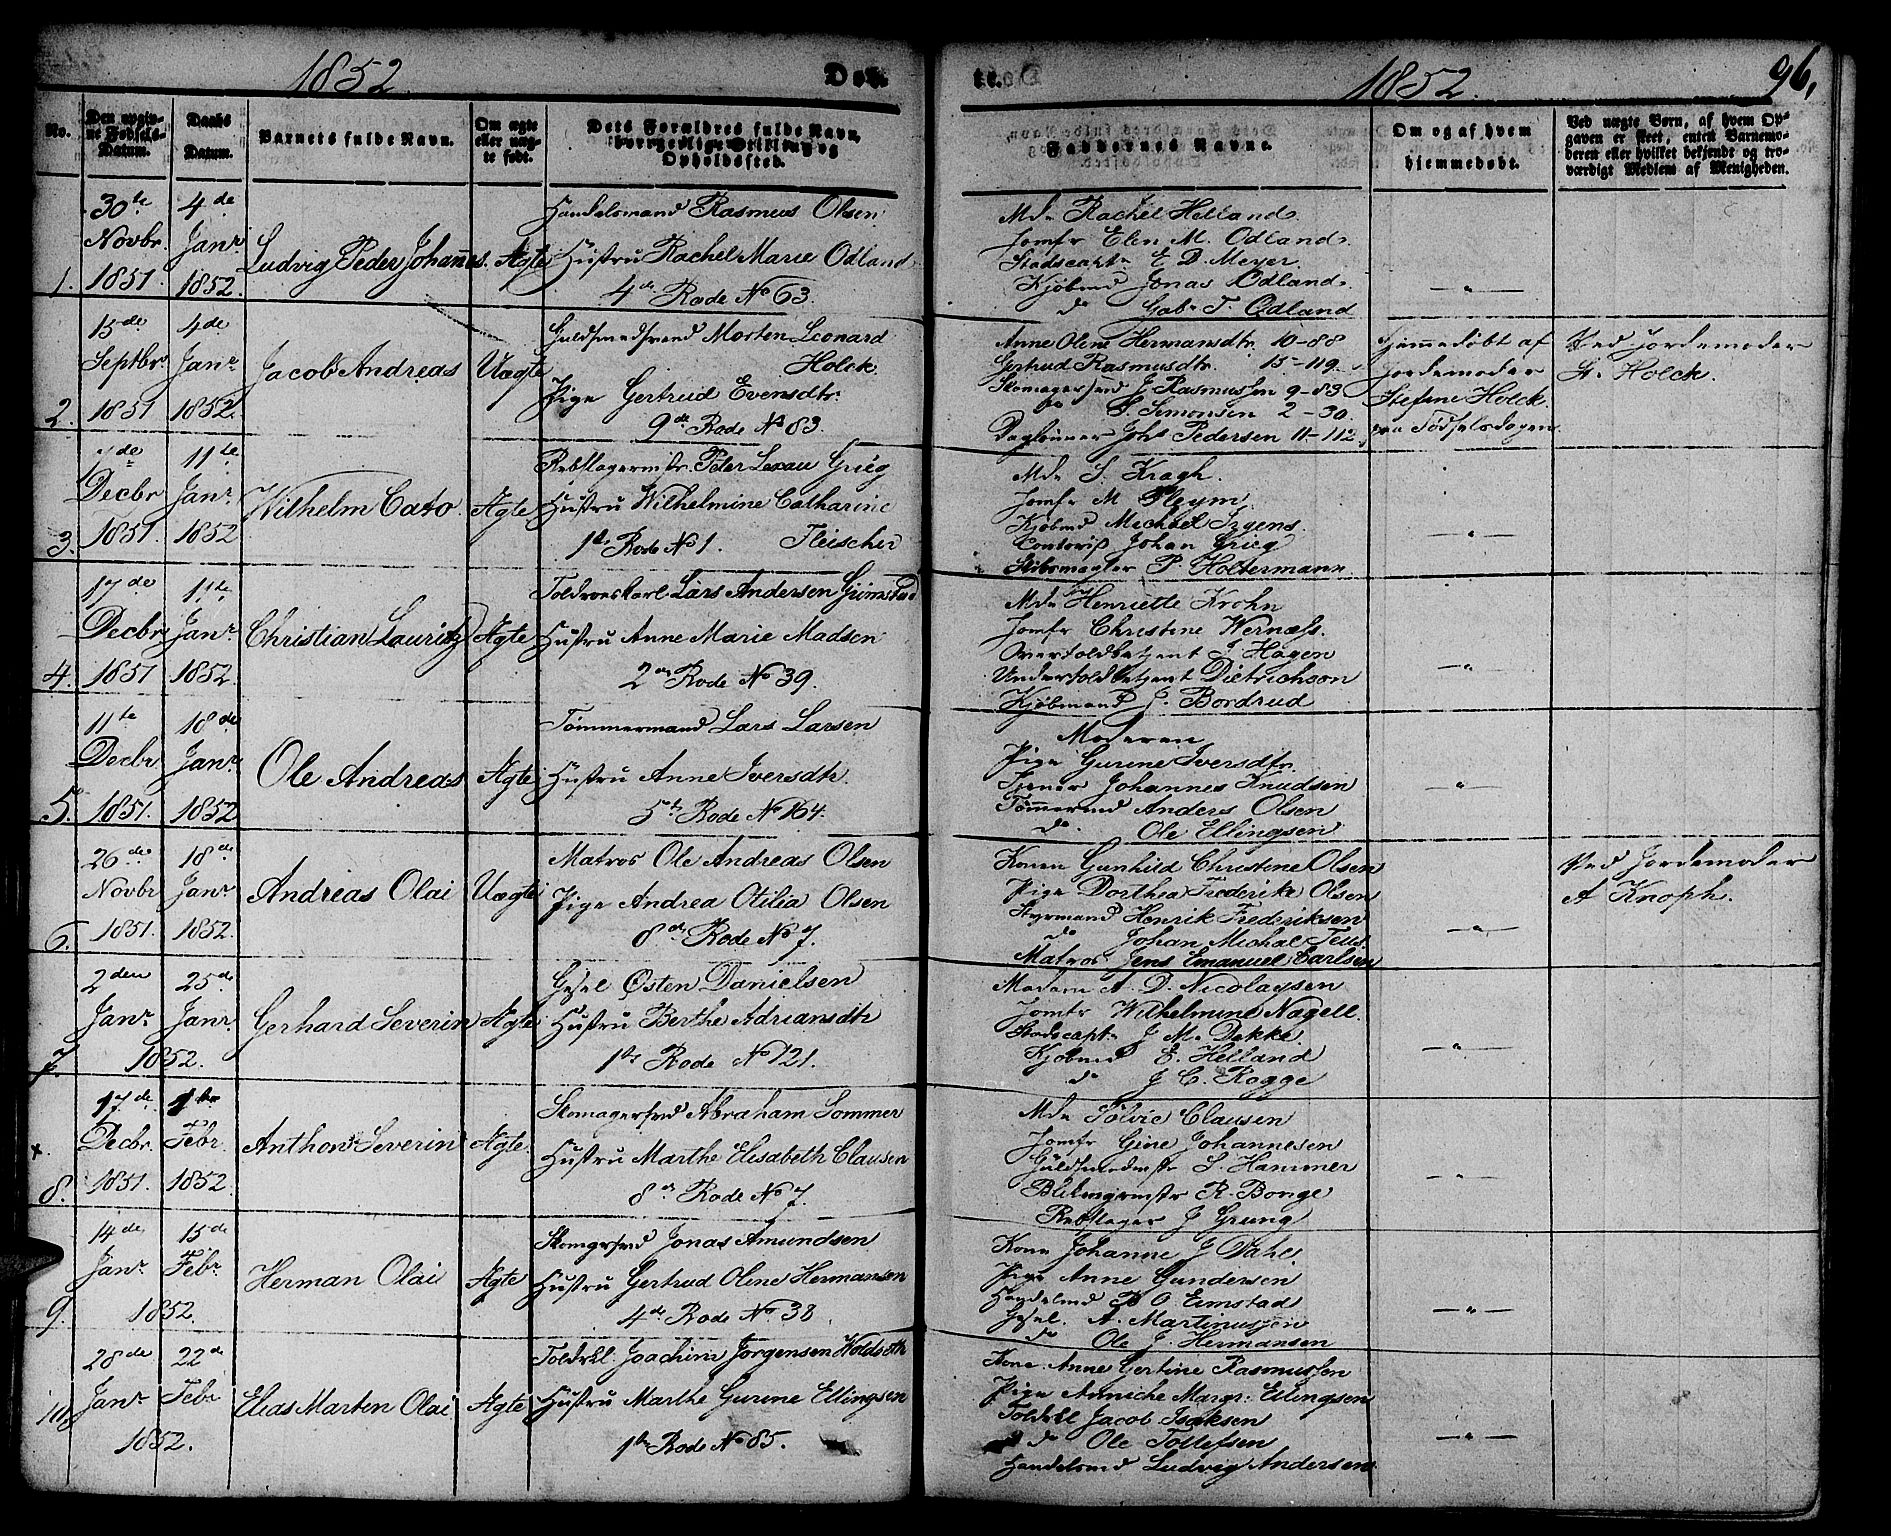 1852. Døb te. 1852. 96,
No.
Den opgiv-
ne Fødsels-
Datum.
Daabs
Datum.
Barnets fulde Navn.
Om ægte
eller uæg-
te født.
Dets Forældres fulde Navn,
borgerlige Stilling og
Opholdssted.
Faddernes Navne.
Om og af hvem
hjemmedøbt.
Ved uægte Børn, af hvem Op-
gaven er skeet, enten Barnemo-
deren eller hvilket bekjendt og tro-
værdigt Medlem af Menigheden.
1.
30te
Novbr.
1851.
4de
Janr
1852.
Ludvig Peder Johannes.
Ægte
Handelsmand Rasmus Olsen
Hustru Rachel Marie Odland
4de Rode No 63.
Mdm Rachel Helland.
Jomfr Elen M. Odland.
Stadscaptn E D. Meyer
Kjøbmd Jonas Odland.
do Gab. T. Odland
— " —
2.
15de
Septbr.
1851
4de
Janr
1852.
Jacob Andreas
Uægte
Guldsmedsvend Morten Leonard
Holck.
Pige Gertrud Evensdtr.
9de Rode No 83.
Anne Oline Hermansdtr. 10-88
Gertrud Rasmusdtr. 15-119.
Skomagersvend J Rasmussen 9-83
do S. Simonsen 2-30.
Daglønner Johs Pedersen 11-112.
Hjemmedøbt af
Jordemoder
Stefine Holck.
paa Fødselsdagen.
Ved Jordemoder
St. Holck.
3.
Decbr
1851.
11te
Janr.
1852
Wilhelm Cato.
Ægte
Rebslagermstr. Peter Lexau Grieg
Hustru Wilhelmine Catharine
1ste Rode No 1. Fleischer
Mdm S. Kragh.
Jomfr M Pleym.
Kjøbmd Michael Irgens.
Contorist Johan Grieg
Skibsmægler P. Holtermann
— " —
4.
17de
Decbr
1851
11te
Janr.
1852.
Christian Lauritz
Ægte
Toldroeskarl Lars Andersen Grimstad
Hustru Anne Marie Madsen
2den Rode No 39.
Mdm Henriette Krohn
Jomfr Christine Wernøls.
Overtoldbetjent J Hagen
Undertoldbetjent Dietrichson
Kjøbmand J. Bordrud
— " —
5.
11te
Decbr.
1851.
18de
Janr.
1852
Ole Andreas
Ægte
Tømmermand Lars Larsen
Hustru Anne Iversdtr.
5te Rode No 164.
Moderen
Pige Gurine Iversdtr.
Tjener Johannes Knudsen
Tømmermd Anders Olsen
do. Ole Ellingsen
— " —
6.
26de
Novbr
1851.
18de
Janr.
1852.
Andreas Olai
Uægte
Matros Ole Andreas Olsen
Pige Andrea Otilia Olsen
8de Rode No 7.
Konen Gunhild Christine Olsen
Pige Dorthea Frederike Olsen
Styrmand Henrik Frederiksen
do Johan Michal
Matros Jens Emanuel Carlsen
— " —
Ved Jordemoder
A Knoph.
7.
2den
Janr
1852.
25de
Janr.
Gerhard Severin
Ægte
Gesel Østen Danielsen
Hustru Berthe Adriansdtr
1ste Rode No 121.
Madam A. D. Nicolaysen
Jomfr Wilhelmine Nagell.
Stadscaptn J M. Dekke.
Kjøbmd E. Helland
do J C. Rogge
— " —
x.
8.
17de
Decbr.
1851.
1ste
Febr.
1852.
Anthon Severin
Ægte.
Skomagersvd Abraham Sommer
Hustru Marthe Elisabeth Clausen
8de Rode No 7.
Mdm Sølvie Clausen
Jomfr Gine Johannesen
Guldsmedmstr S. Hammer
Blikkenslmstr R. Bonge
Rebslager J Grung
— " —
9.
14de
Janr.
1852.
15de
Febr.
Herman Olai
Ægte
Skomgrsvd Jonas Amundsen
Hustru Gertrud Oline Hermansen
4de Rode No 38.
Kone Johanne J Dahl
Pige Anne Gundersen
Handelmd O Eimstad
Gesel. A. Martinussen
do Ole J. Hermansen
— " —
10.
28de
Janr.
1852.
22de
Febr
Elias Marten Olai
Ægte
Toldrkl. Joachim Jørgensen Holdseth
Hustru Marthe Gurine Ellingsen
1ste Rode No 85.
Kone. Anne Gertine Rasmussen
Pige Anniche Margr: Ellingsen
Toldrkl Jacob Isaksen
do Ole Tollefsen
Handelsmd Ludvig Andersen
— " —